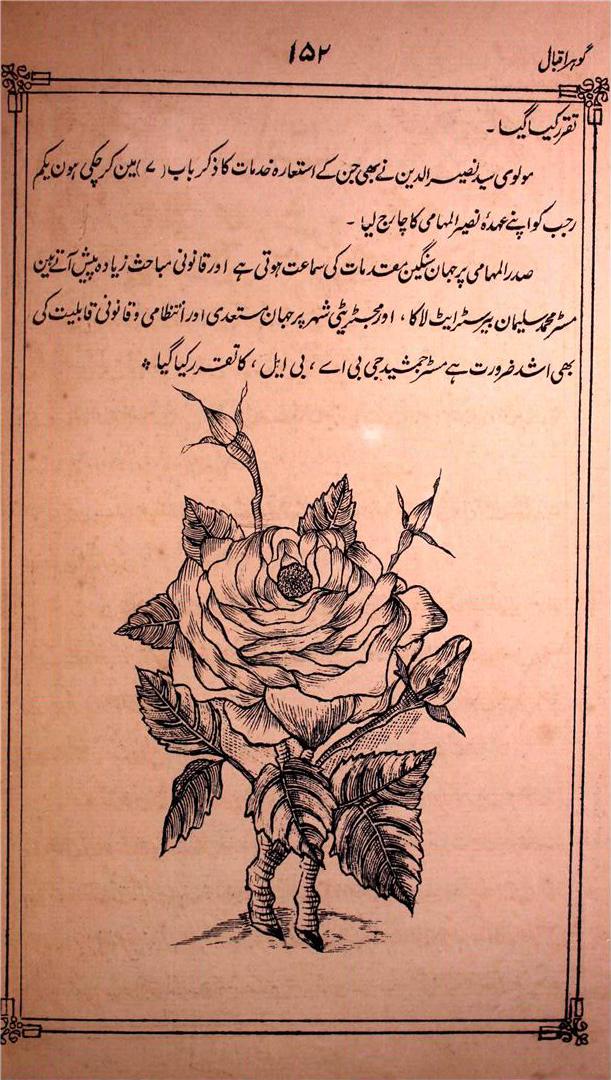 گوہر اقبال
۱۵۲
تقرر کیا گیا ۔
مولوی سید نصیر الدین نے بھی جن کے استعارہ خدمات کا ذکر باب (۷) مین کر چکی ہون یکم
رجب کو اپنے عہدۂ نصیر المہامی کا چارج لیا ۔
صدر المہامی پر جہان سنگین مقدمات کی سماعت ہوتی ہے اور قانونی مباحث زیادہ پیش آتے ہین
مسٹر محمد سلیمان بیرسٹر ایٹ لا کا ، اور مجسٹریٹی شہر پر جہان مستعدی اور انتظامی و قانونی قابلیت کی
بھی اشد ضرورت ہے مسٹر جمشید جی بی اے ، بی ایل ، کا تقرر کیا گیا ⁂